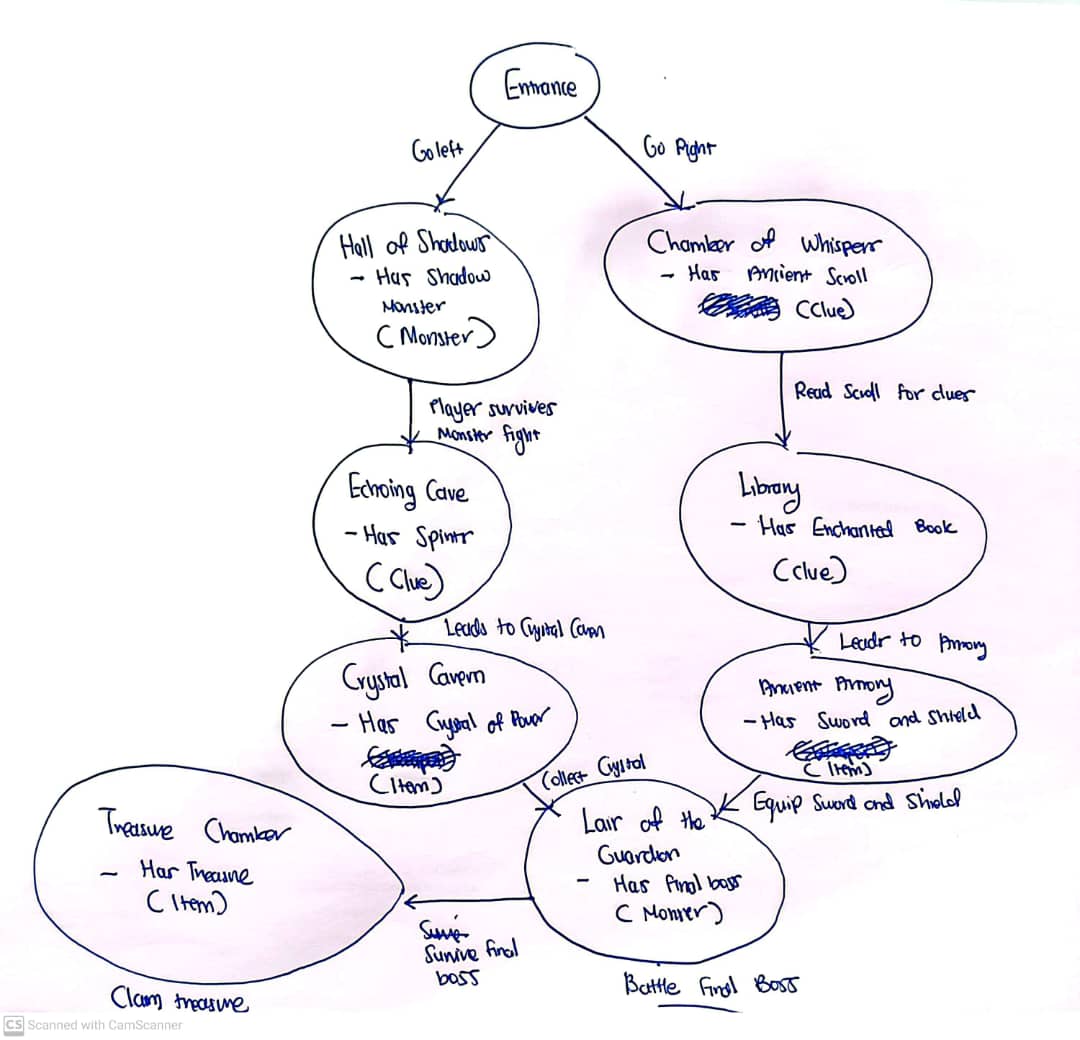 Entrance
Go left
Go Right
Hall of Shadows
- Has Shadow
Monster
(Monster)
Chamber of Whispers
- Has Ancient Scroll
(Clue)
Player survives
Monster fight
Read Scroll for clues
Echoing Cave
- Has Spirits
(Clue)
Library
- Has Enchanted Book
(Clue)
Leads to Crystal Cavern
Leads to Armory
Crystal Cavern
- Has Crystal of Power
(Item)
Ancient Armory
- Has Sword and Shield
(Item)
Collect Crystal
Equip Sword and Shield
Treasure Chamber
- Has Treasure
(Item)
Lair of the
Guardian
- Has final boss
(Monster)
Survive final
boss
Battle Final Boss
Claim treasure
CS Scanned with CamScanner